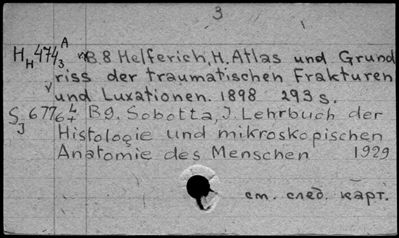 3.
H H 474 A 3 B.8 Helferich, H. Atlas und Grund
riss der traumatischen Frakturen
und Luxationen. 1898 293 s.
S J 6776 4 B9. Sobotta, J. Lehrbuch der
Histologie und mikroskopischen
Anatomie des Menschen 1929
см. след. карт.